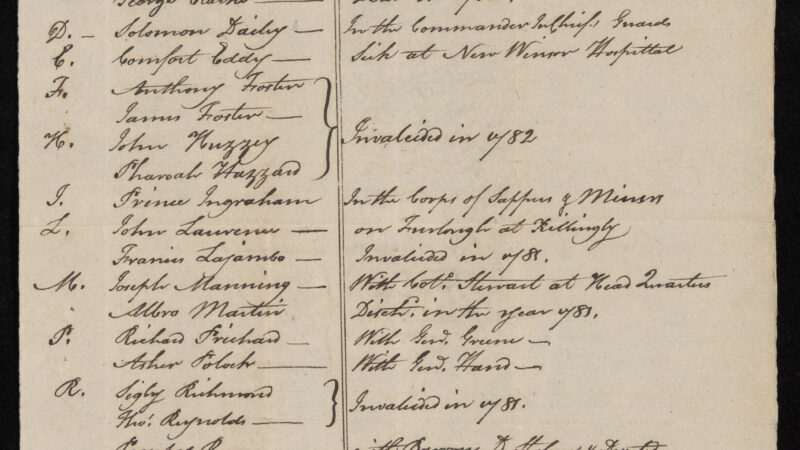 D. – Solomon Dailey — In the Commander In Chiefs Guards
E. Comfort Eddy — Sick at New Winsor Hospittal
F. Anthony Foster
James Foster —
Invaleided in 1782
H. John Huzzey
Pharoah Hazzard
I. Prince Ingraham In the Corps of Sappers & Miners
L. John Lawrence — on Furlough at Killingly
Francis Lajambo — Invaleided in 1781.
M. Joseph Manning — With Colo. Stewart at Head Quarters
Albro Martin Dischd. in the year 1781.
P. Richard Prichard — With Genl. Greene —
Asher Polock — With Genl. Hand —
R. Sigby Richmond
Invaleided in 1781.
Thos. Reynolds —